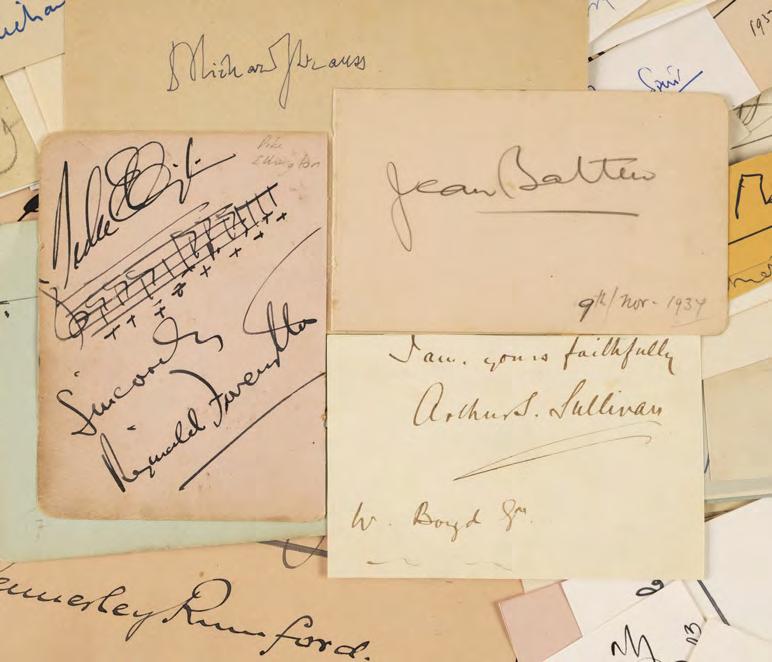 Richard Strauss
1937
Duke
Ellington
Jean Batten
9th/Nov - 1937
Sincerely
Reginald Foresythe
I am. yours faithfully
Arthur S. Sullivan
W. Boyd Esq.
Kennerley Rumford.
13